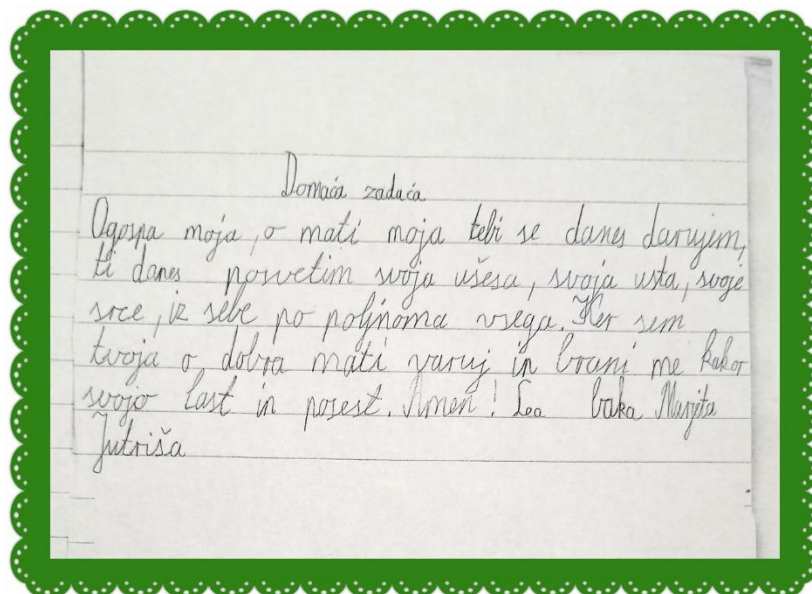 Domaća zadaća
Ogospa moja, o mati moja tebi se danes darujem,
ti danes posvetim svoja ušesa, svoja usta, svoje
srce, iz sebe po poljnoma vsega. Ker sem
tvoja o dobra mati varuj in brani me kakor
svojo last in posest. Amen! Lea baka Marjita
Jutriša